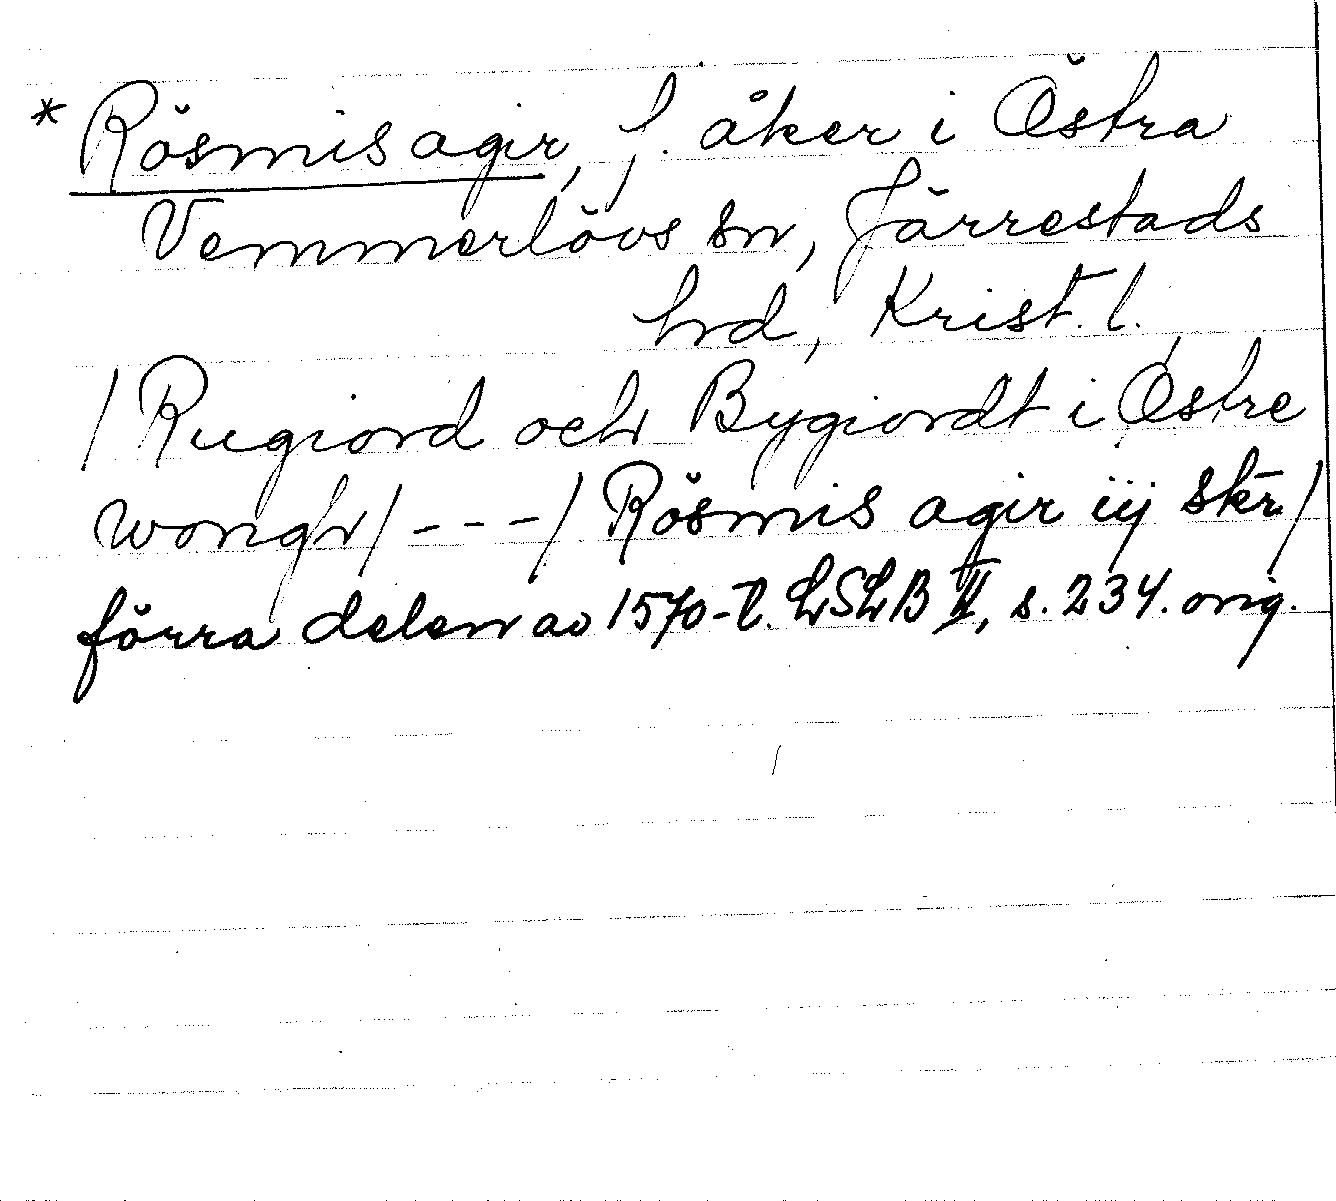 * Rösmis agir, f. åker i Östra
Vemmerlövs sn, Järrestads
hrd, Krist. l.
/Rugiord och Bygiordt i Østre
wongh/---/Rösmis agir iij skr./
förra delen av 1570-t. LSLB II, s. 234. orig.